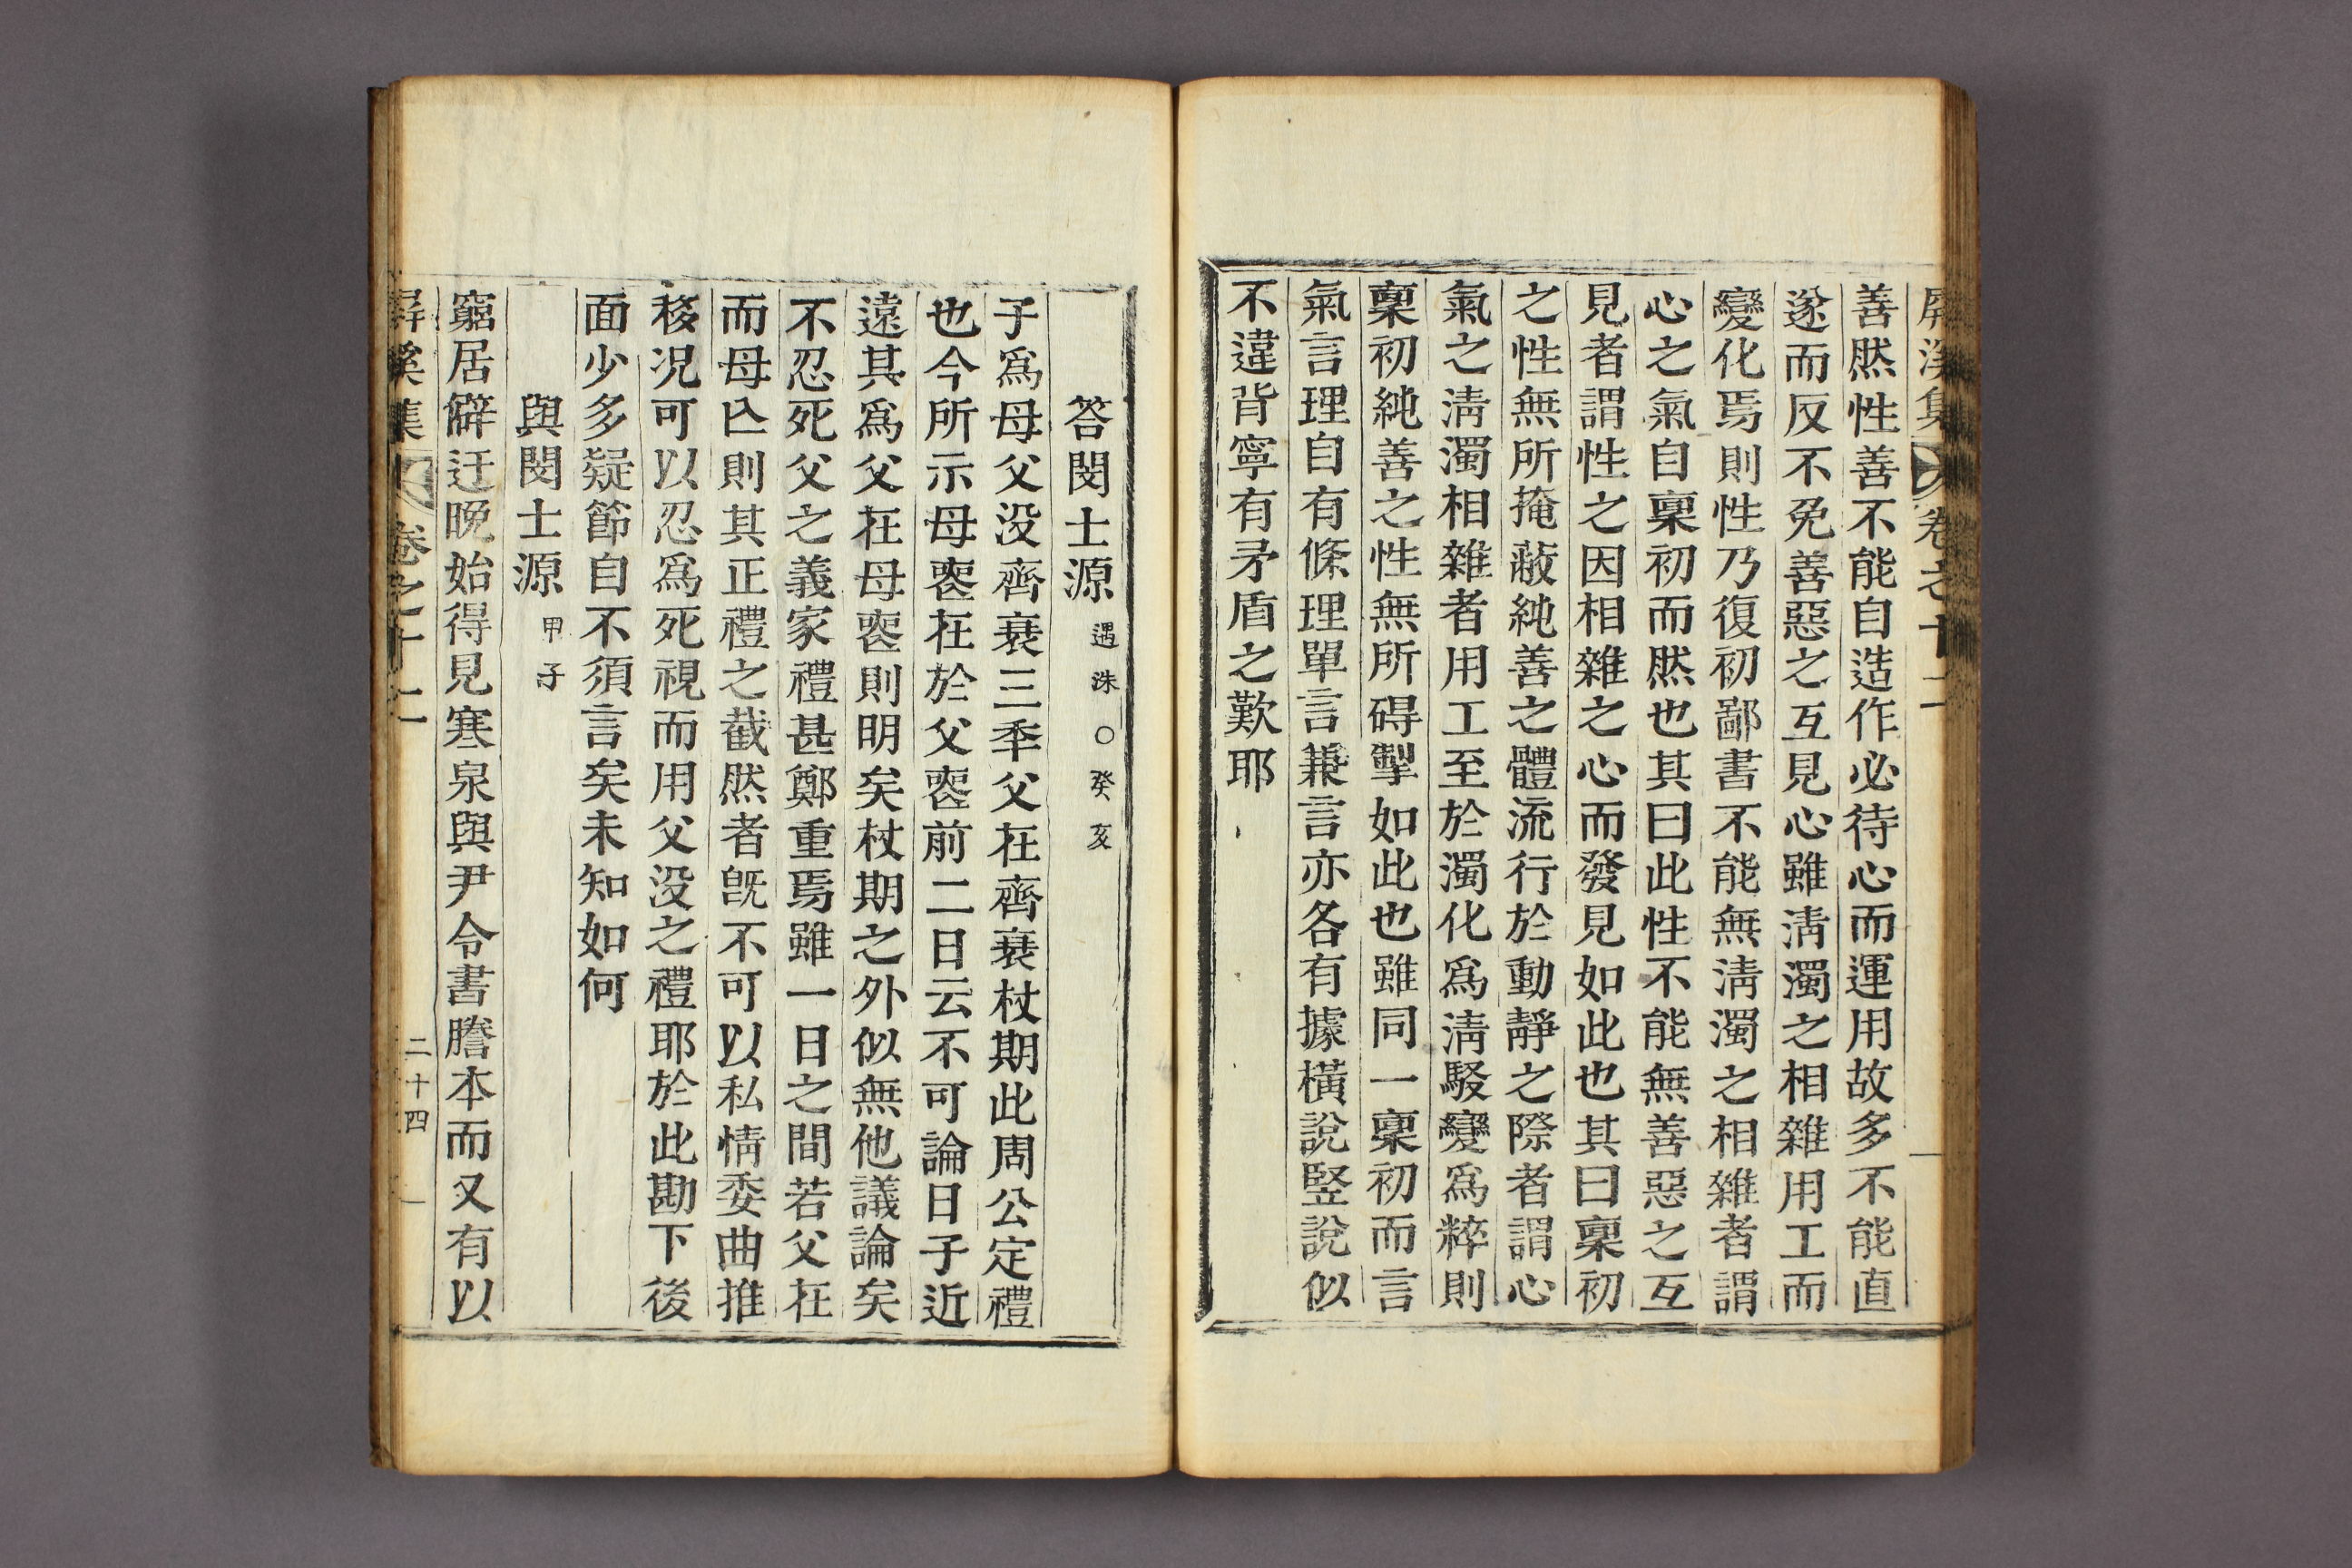 屛溪集 卷之十二
善然性善不能自造作必待心而運用故多不能直
遂而反不免善惡之互見心雖淸濁之相雜用工而
變化焉則性乃復初鄙書不能無淸濁之相雜者謂
心之氣自稟初而然也其曰此性不能無善惡之互
見者謂性之因相雜之心而發見如此也其曰稟初
之性無所掩蔽純善之體流行於動靜之際者謂心
氣之淸濁相雜者用工至於濁化爲淸駁變爲粹則
稟初純善之性無所碍掣如此也雖同一稟初而言
氣言理自有條理單言兼言亦各有據橫說竪說似
不違背寧有矛盾之歎耶
答閔士源 遇洙○癸亥
子爲母父没齊衰三秊父在齊衰杖期此周公定禮
也今所示母喪在於父喪前二日云不可論日子近
遠其爲父在母喪則明矣杖期之外似無他議論矣
不忍死父之義家禮甚鄭重焉雖一日之間若父在
而母亾則其正禮之截然者旣不可以私情委曲推
移况可以忍爲死視而用父没之禮耶於此勘下後
面少多疑節自不須言矣未知如何
與閔士源 甲子
窮居僻迂晩始得見寒泉與尹令書謄本而又有以
屛溪集 卷之十二 二十四